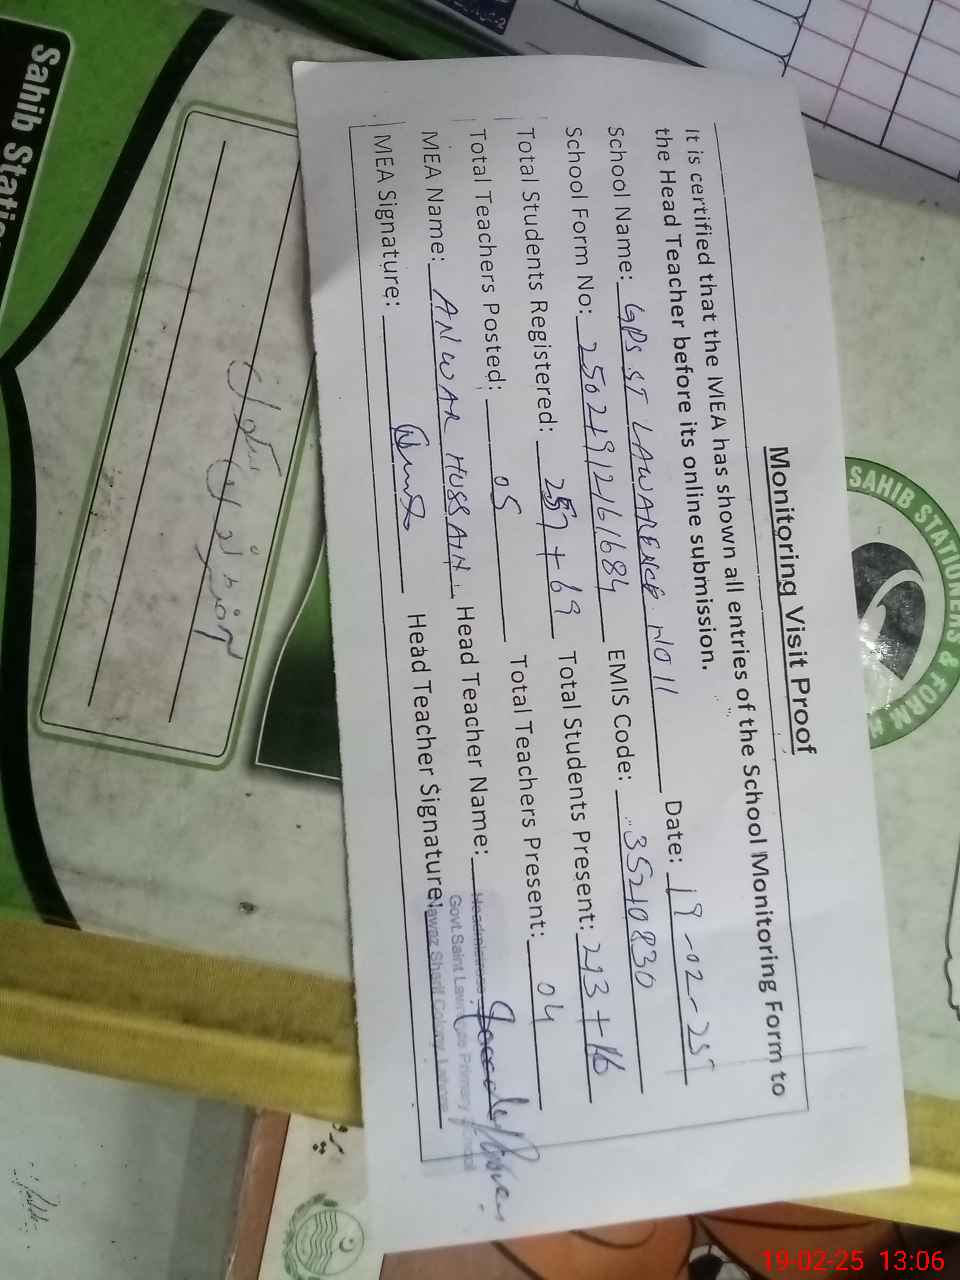 Monitoring Visit Proof
It is certified that the MEA has shown all entries of the School Monitoring Form to
the Head Teacher before its online submission.
School Name: GPS ST LAWARENCE Date: 19-02-25
School Form No: EMIS Code: 35210830
Total Students Registered: 257+69 Total Students Present: 213+16
Total Teachers Posted: 05 Total Teachers Present: 04
MEA Name: ANWAR HUSSAIN. Head Teacher Name:
MEA Signature: Head Teacher Signature:
Headmistress
Govt.Saint Primary School
Nawaz Sharif Colony, Lahore
SAHIB STATIONERS & FORM
Sahib Static
19-02-25 13:06